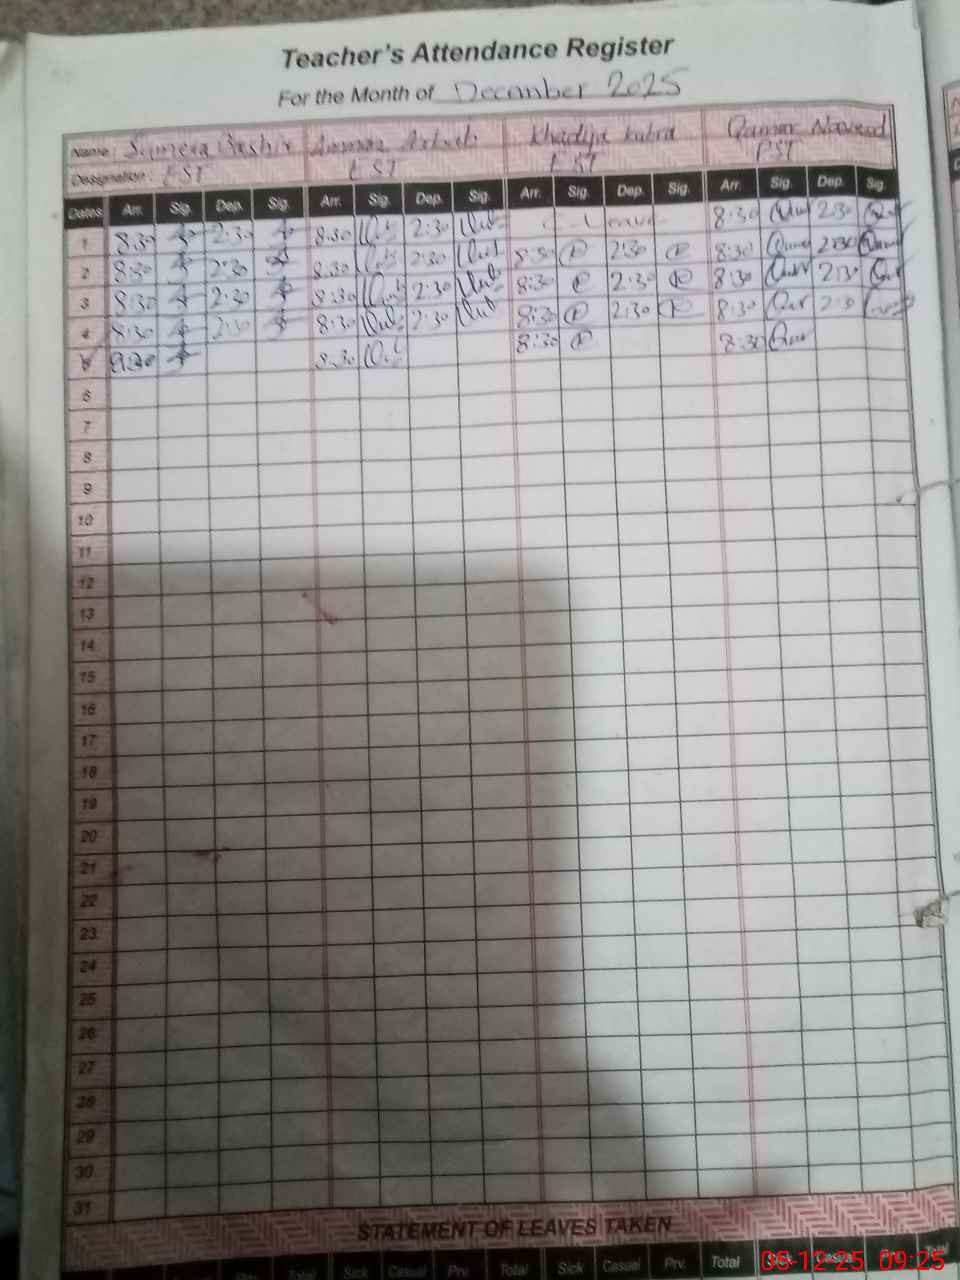 Teacher's Attendance Register
For the Month of December 2025
Name: Sumera Bashir Khadija Kubra Qamar Naveed
Designation: EST EST EST PST
Dates Arr. Sig. Dep. Sig. Arr. Sig. Dep. Sig. Arr. Sig. Dep. Sig. Arr. Sig. Dep. Sig.
1 8:30 2:30 8:30 2:30 Leave 8:30 2:30
2 8:30 2:30 8:30 2:30 8:30 2:30 8:30 2:30
3 8:30 2:30 8:30 2:30 8:30 2:30 8:30 2:30
4 8:30 2:30 8:30 2:30 8:30 2:30 8:30 2:30
5 8:30 8:30 8:30
6
7
8
9
10
11
12
13
14
15
16
17
18
19
20
21
22
23
24
25
26
27
28
29
30
31
STATEMENT OF LEAVES TAKEN
Total Sick Casual Prv. Total Sick Casual Prv. Total Sick Casual Prv. Total
05-12-25 09:25